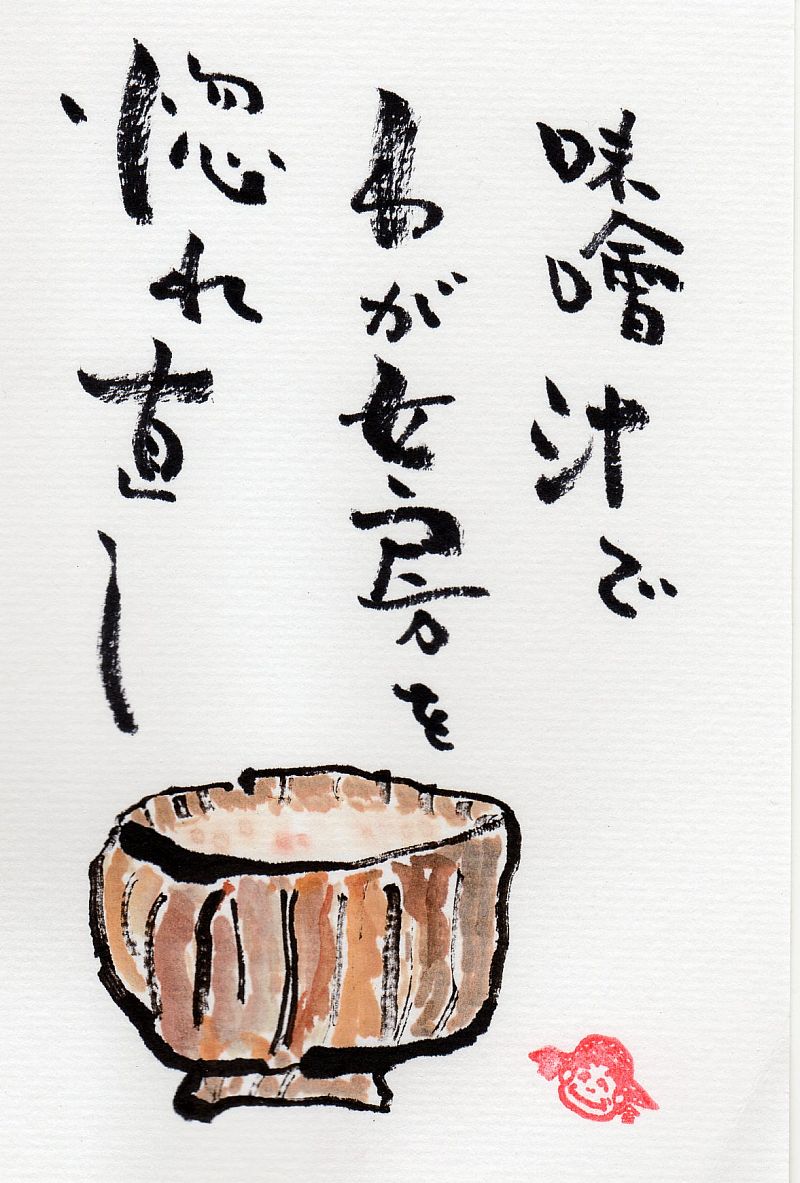 味噌汁で
わが女房を
惚れ直し